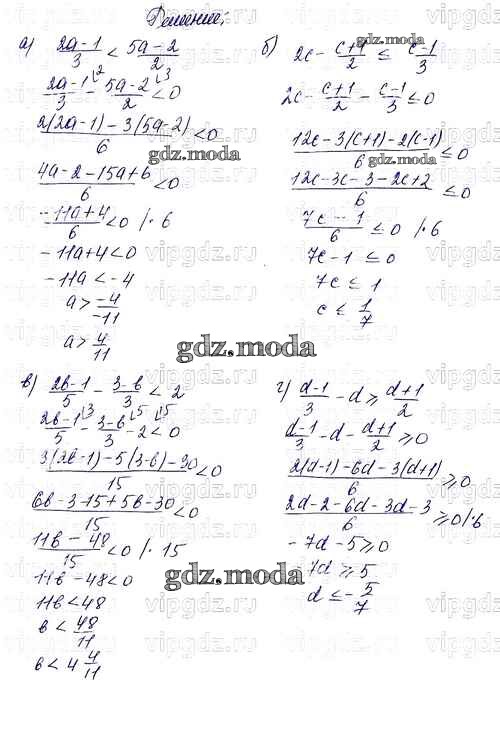 Решение:
а) (2a-1)/3 < (5a-2)/2
(2a-1)/3 - (5a-2)/2 < 0
(2(2a-1)-3(5a-2))/6 < 0
(4a-2-15a+6)/6 < 0
(-11a+4)/6 < 0 /·6
-11a+4<0
-11a<-4
a > -4/-11
a > 4/11
б) 2c - (c+1)/2 ≤ (c-1)/3
2c - (c+1)/2 - (c-1)/3 ≤ 0
(12c-3(c+1)-2(c-1))/6 ≤ 0
(12c-3c-3-2c+2)/6 ≤ 0
(7c-1)/6 ≤ 0 /·6
7c-1 ≤ 0
7c ≤ 1
c ≤ 1/7
в) (2b-1)/5 - (3-b)/3 < 2
(2b-1)/5 - (3-b)/3 - 2 < 0
(3(2b-1)-5(3-b)-30)/15 < 0
(6b-3-15+5b-30)/15 < 0
(11b-48)/15 < 0 /·15
11b-48<0
11b<48
b < 48/11
b < 4 4/11
г) (d-1)/3 - d ≥ (d+1)/2
(d-1)/3 - d - (d+1)/2 ≥ 0
(2(d-1)-6d-3(d+1))/6 ≥ 0
(2d-2-6d-3d-3)/6 ≥ 0 /·6
-7d-5≥0
-7d ≥ 5
d ≤ -5/7
gdz.moda
gdz.moda
gdz.moda
gdz.moda
gdz.moda
gdz.moda
vipgdz.ru